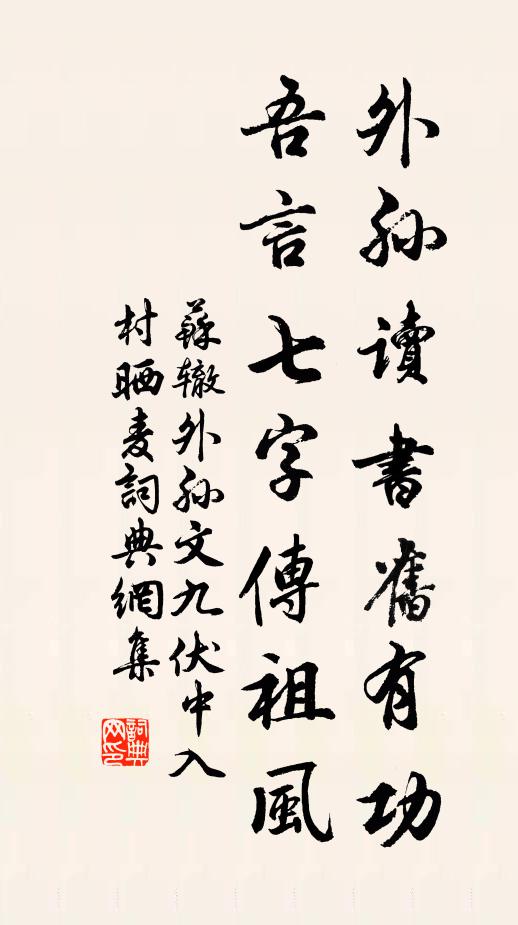 外孙讀書舊有功
吾言七字傳祖風
蘇辙外孙文九伏中入
村晒麦詞典網集
詞典
网印